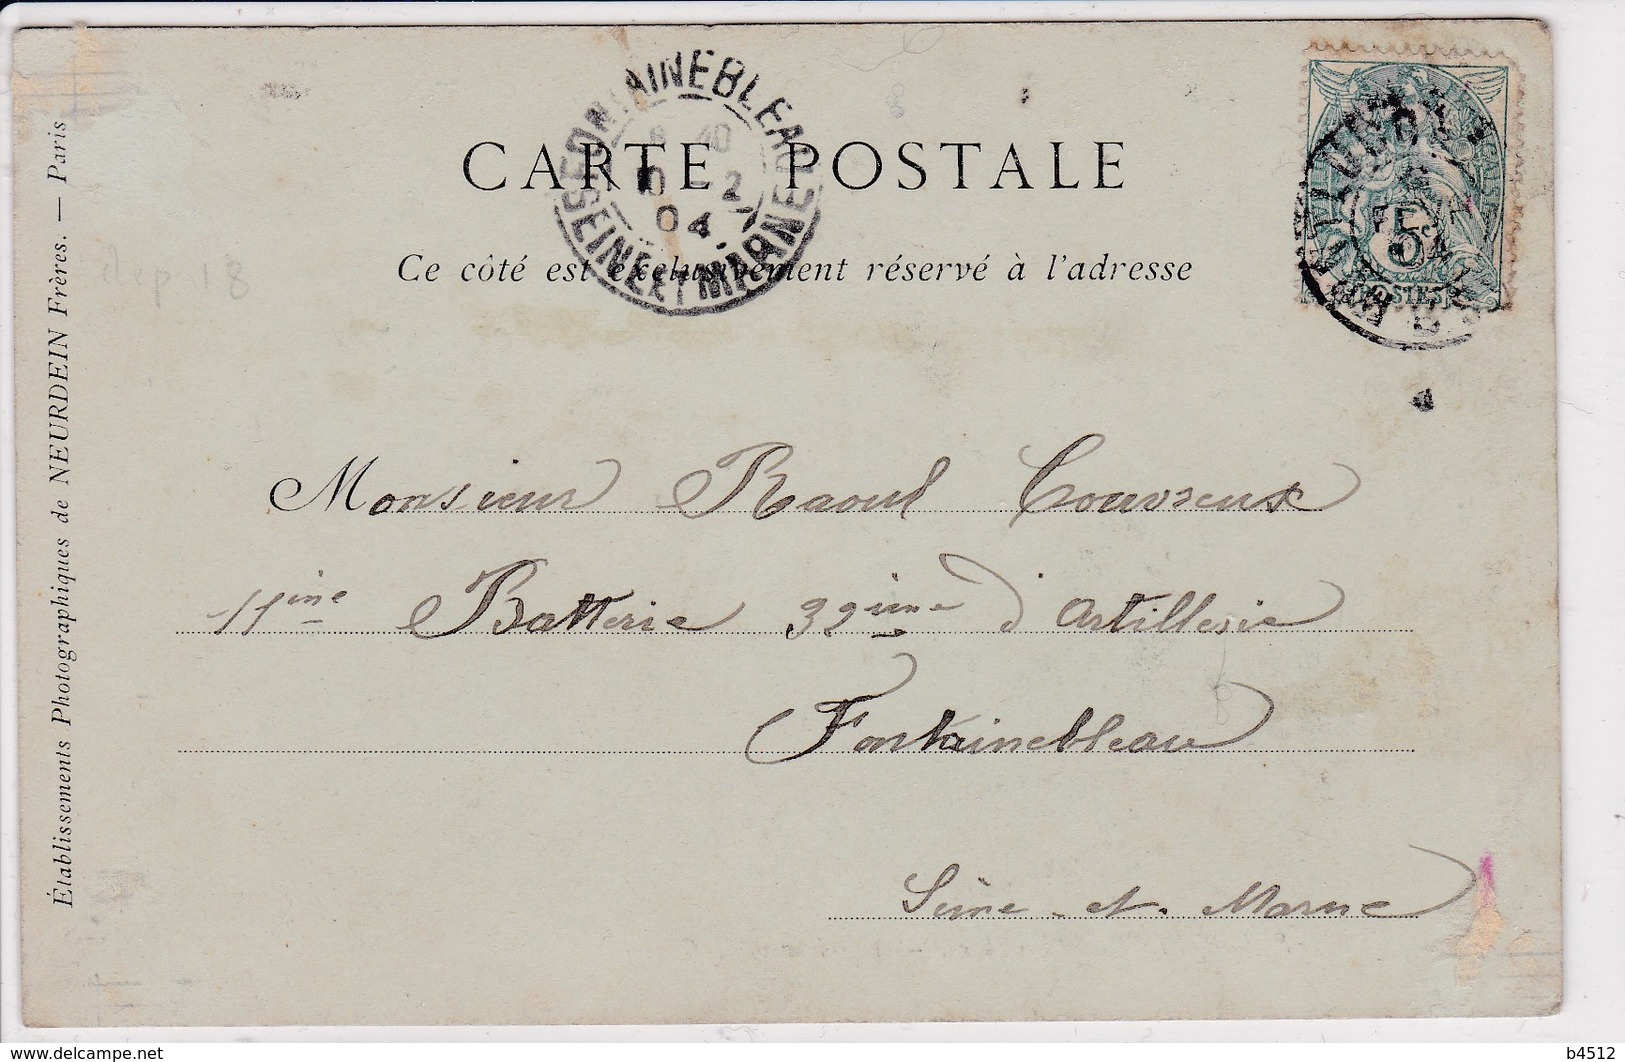 FONTAINEBLEAU
SEINE ET MARNE
8 40
10 - 2
04
CARTE POSTALE
Ce côté est exclusivement réservé à l'adresse
5
POSTES
Établissements Photographiques de NEURDEIN Frères. — Paris
dep 18
Monsieur Raoul Couvreux
11ème Batterie 32ième d'Artillerie
Fontainebleau
Seine-et-Marne
delcampe.net
b4512